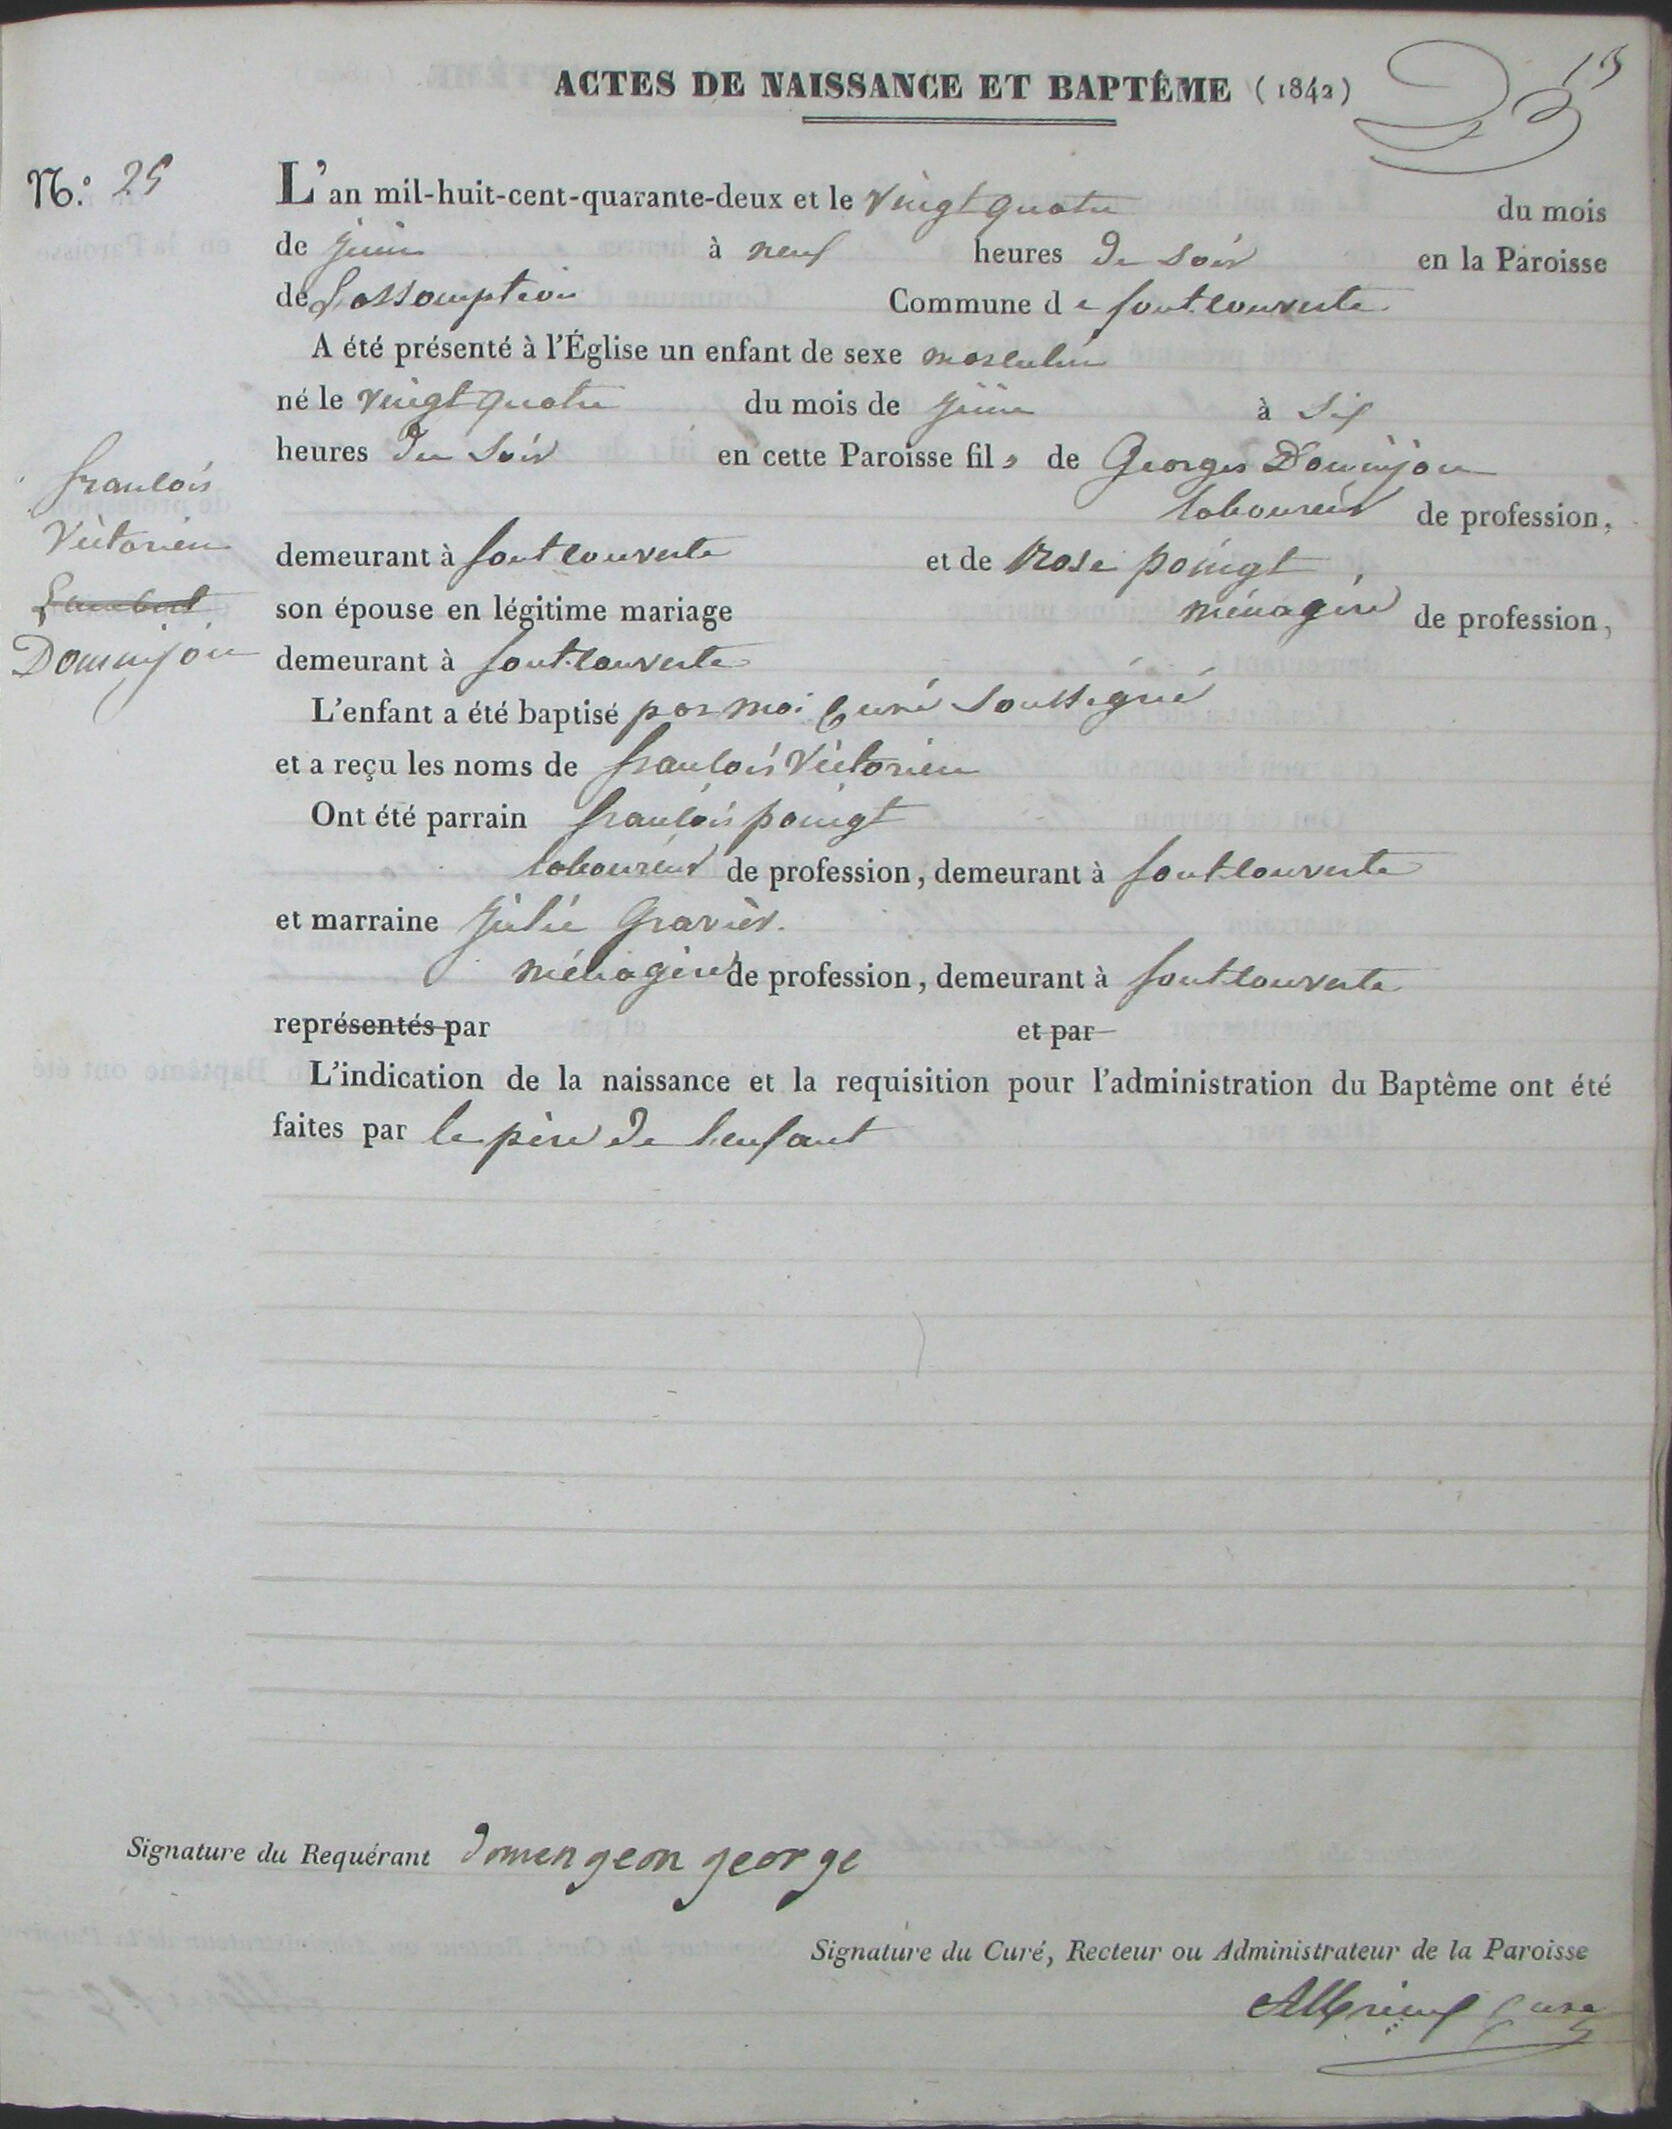 ACTES DE NAISSANCE ET BAPTÊME (1842)
13
N.º 25
L'an mil-huit-cent-quarante-deux et le vingt quatre du mois
de juin à neuf heures du soir en la Paroisse
de Lassomption Commune de fontcouverte
A été présenté à l'Église un enfant de sexe masculin
né le vingt quatre du mois de juin à six
heures du soir en cette Paroisse fils de Georges Dominjon
laboureur de profession,
demeurant à fontcouverte et de Rose poingt
son épouse en légitime mariage ménagère de profession,
demeurant à fontcouverte
françois
Victorien
Lambert
Dominjon
L'enfant a été baptisé par moi Curé soussigné
et a reçu les noms de françois Victorien
Ont été parrain françois poingt
laboureur de profession, demeurant à fontcouverte
et marraine Julie Gravier.
ménagère de profession, demeurant à fontcouverte
représentés par et par
L'indication de la naissance et la requisition pour l'administration du Baptème ont été
faites par le père de l'enfant
Signature du Requérant domengeon george
Signature du Curé, Recteur ou Administrateur de la Paroisse
curé